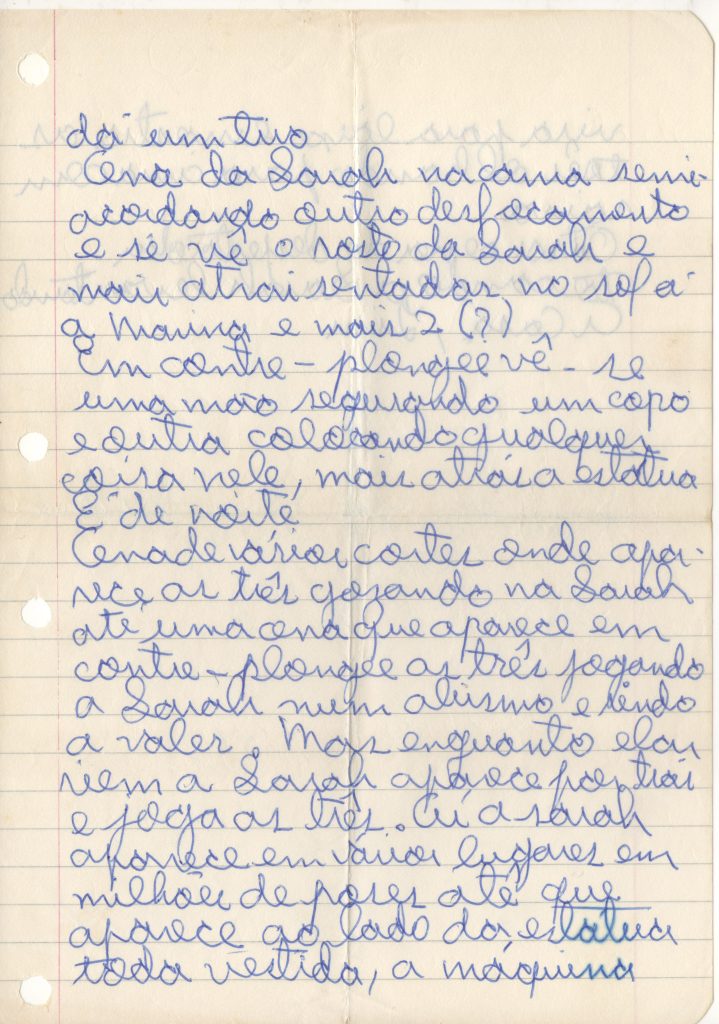 dá um tiro
Cena da Sarah na cama semi-
acordando outro desfocamento
e se vê o rosto da Sarah e
mais atrai sentadas no sofá
a Marina e mais 2 (?)
Em contre-plongée vê-se
uma mão segurando um copo
e outra colocando qualquer
coisa nele, mais atrás a estátua
É de noite
Cena de vários cortes onde apa-
rece as três gozando na Sarah
até uma cena que aparece em
contre-plongée as três jogando
a Sarah num abismo e rindo
a valer. Mas enquanto elas
riem a Sarah aparece por trás
e joga as três. Aí a Sarah
aparece em vários lugares em
milhões de poses até que
aparece ao lado da estátua
toda vestida, a máquina